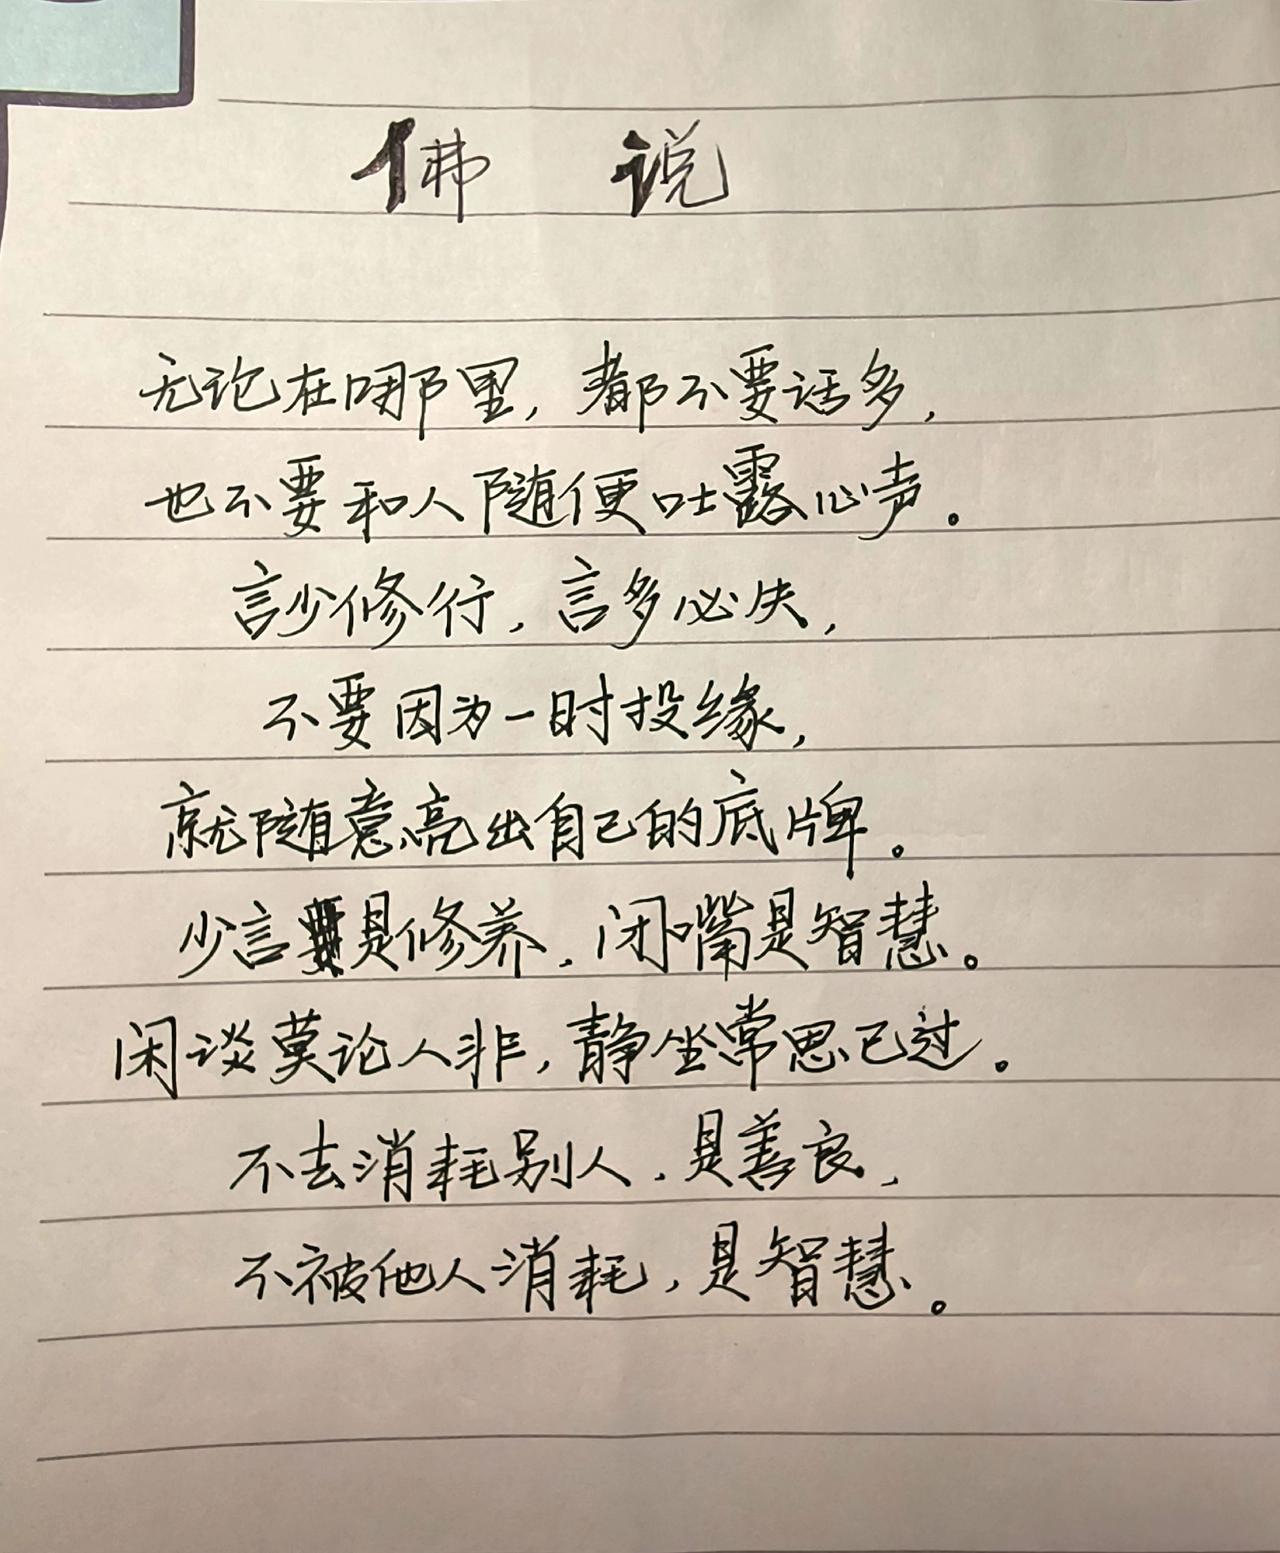 佛 说
无论在哪里,都不要话多,
也不要和人随便吐露心声。
言少修行,言多必失,
不要因为一时投缘,
就随意亮出自己的底牌。
少言是修养,闭嘴是智慧。
闲谈莫论人非,静坐常思己过。
不去消耗别人,是善良,
不被他人消耗,是智慧。